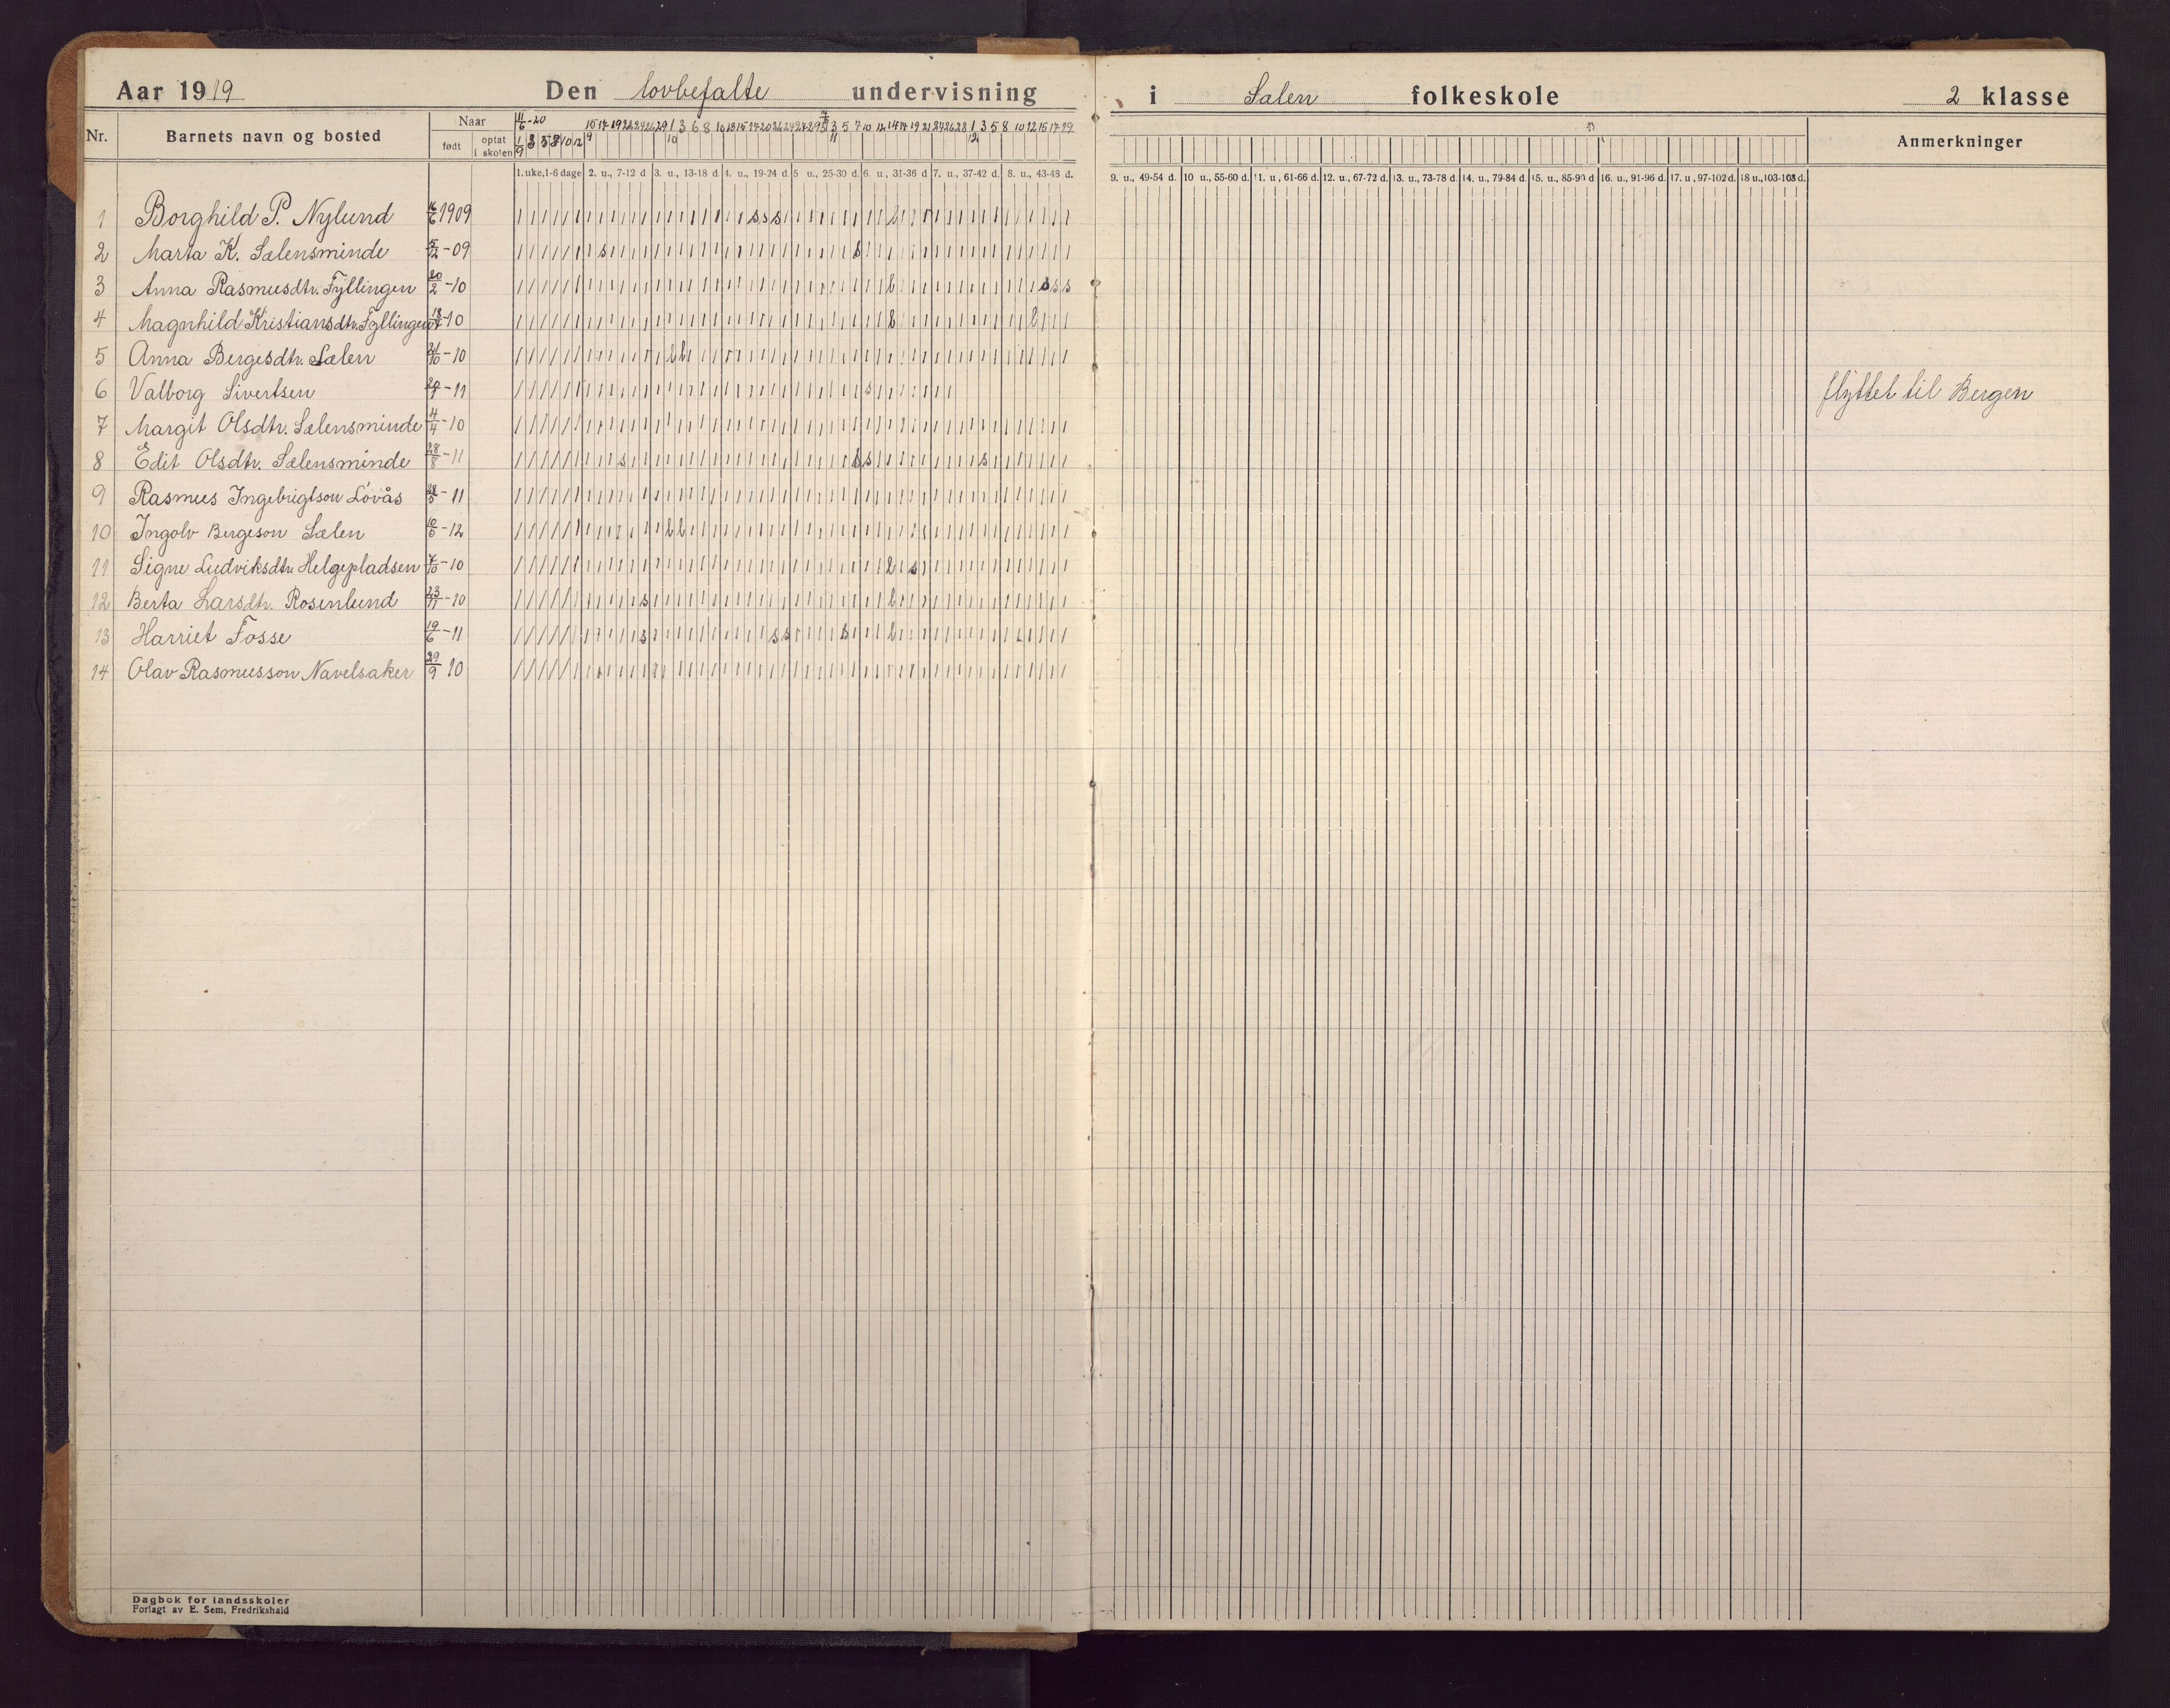 Aar 1919 Den lovbefalte undervisning i Sælen folkeskole 2 klasse
Nr. Barnets navn og bosted Naar født optat i skolen Anmerkninger
1. uke, 1-6 dage 2. u., 7-12 d 3. u., 13-18 d 4. u., 19-24 d. 5 u., 25-30 d. 6. u., 31-36 d 7. u., 37-42 d. 8. u., 43-48 d. 9. u., 49-54 d. 10 u., 55-60 d. 11. u, 61-66 d. 12. u., 67-72 d. 13. u., 73-78 d. 14. u., 79-84 d. 15. u., 85-90 d 16. u., 91-96 d. 17. u, 97-102 d. 18 u., 103-108 d.
1 Borghild P. Nylund 16/6 1909
2 Marta K. Sælensminde 5/12 -09
3 Anna Rasmusdtr. Fyllingen 20/2 -10
4 Magnhild Kristiansdtr. Fyllingen -10
5 Anna Bergesdtr. Sælen 21/10 -10
6 Valborg Sivertsen -11 flyttet til Bergen
7 Margit Olsdtr. Sælensminde 14/4 -10
8 Edit Olsdtr. Sælensminde 28/8 -11
9 Rasmus Ingebrigtson Lövås 28/5 -11
10 Ingolv Bergeson Sælen 10/5 -12
11 Signe Ludviksdtr. Helgepladsen 7/10 -10
12 Berta Larsdtr. Rosenlund 23/11 -10
13 Harriet Fosse 19/6 -11
14 Olav Rasmusson Navelsaker 29/9 10
Dagbok for landsskoler
Forlagt av E. Sem, Fredrikshald